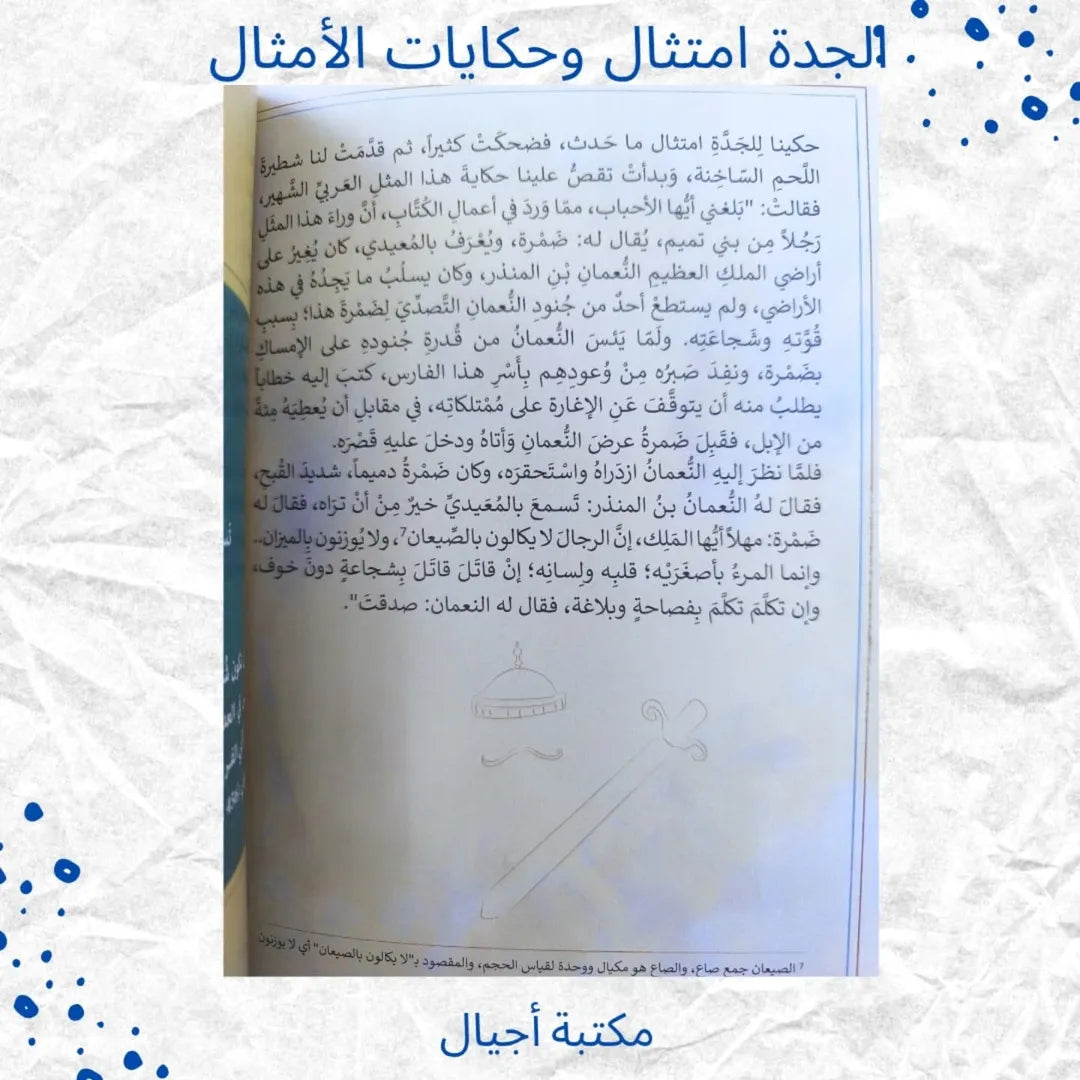 الجدة امتثال وحكايات الأمثال
حكينا لِلجَدَّةِ امتثال ما حَدث، فضحكَتْ كثيراً، ثم قدَّمَتْ لنا شطيرةَ
اللَّحمِ السّاخِنة، وَبدأتْ تقصُّ علينا حكايةَ هذا المثلِ العَربيِّ الشَّهير،
فقالتْ: "بَلغني أيُّها الأحباب، ممّا وَردَ في أعمالِ الكُتَّابِ، أنَّ وراءَ هذا المثَلِ
رَجُلاً مِن بني تميم، يُقال له: ضَمْرة، ويُعْرَفُ بالمُعيدي، كان يُغِيرُ على
أراضي الملكِ العظيمِ النُّعمانِ بْنِ المنذر، وكان يسلُبُ ما يَجِدُهُ في هذه
الأراضي، ولم يستطعْ أحدٌ من جُنودِ النُّعمانِ التَّصدِّيَ لِضَمْرةَ هذا؛ بِسببِ
قُوَّتهِ وشَجاعَتِه. ولَمّا يَئسَ النُّعمانُ من قُدرةِ جُنودهِ على الإمساكِ
بضَمْرة، ونفِدَ صَبرُه مِنْ وُعودِهِم بِأَسْرِ هذا الفارس، كتبَ إليه خطاباً
يطلبُ منه أن يتوقَّفَ عَنِ الإغارة على مُمْتلكاتِه، في مقابلِ أن يُعطِيَهُ مِئةً
من الإبل، فقَبِلَ ضَمرةُ عرضَ النُّعمانِ وَأتاهُ ودخلَ عليهِ قَصْرَه.
فلمَّا نظرَ إليهِ النُّعمانُ ازدَراهُ واسْتَحقرَه، وكان ضَمْرةُ دميماً، شديدَ القُبح،
فقالَ لهُ النُّعمانُ بنُ المنذر: تَسمعَ بالمُعَيديِّ خيرٌ مِنْ أنْ ترَاه، فقالَ له
ضَمْرة: مهلاً أيُّها المَلِك، إنَّ الرجالَ لا يكالون بالصِّيعان⁷، ولا يُوزنون بِالميزان..
وإنما المرءُ بأصغَرَيْه؛ قلبِه ولِسانِه؛ إنْ قاتَلَ قاتَلَ بِشجاعةٍ دونَ خوف،
وإن تكلَّمَ تكلَّمَ بِفصاحةٍ وبلاغة، فقال له النعمان: صدقتَ".
⁷ الصيعان جمع صاع، والصاع هو مكيال ووحدة لقياس الحجم، والمقصود بـ"لا يكالون بالصيعان" أي لا يوزنون
مكتبة أجيال